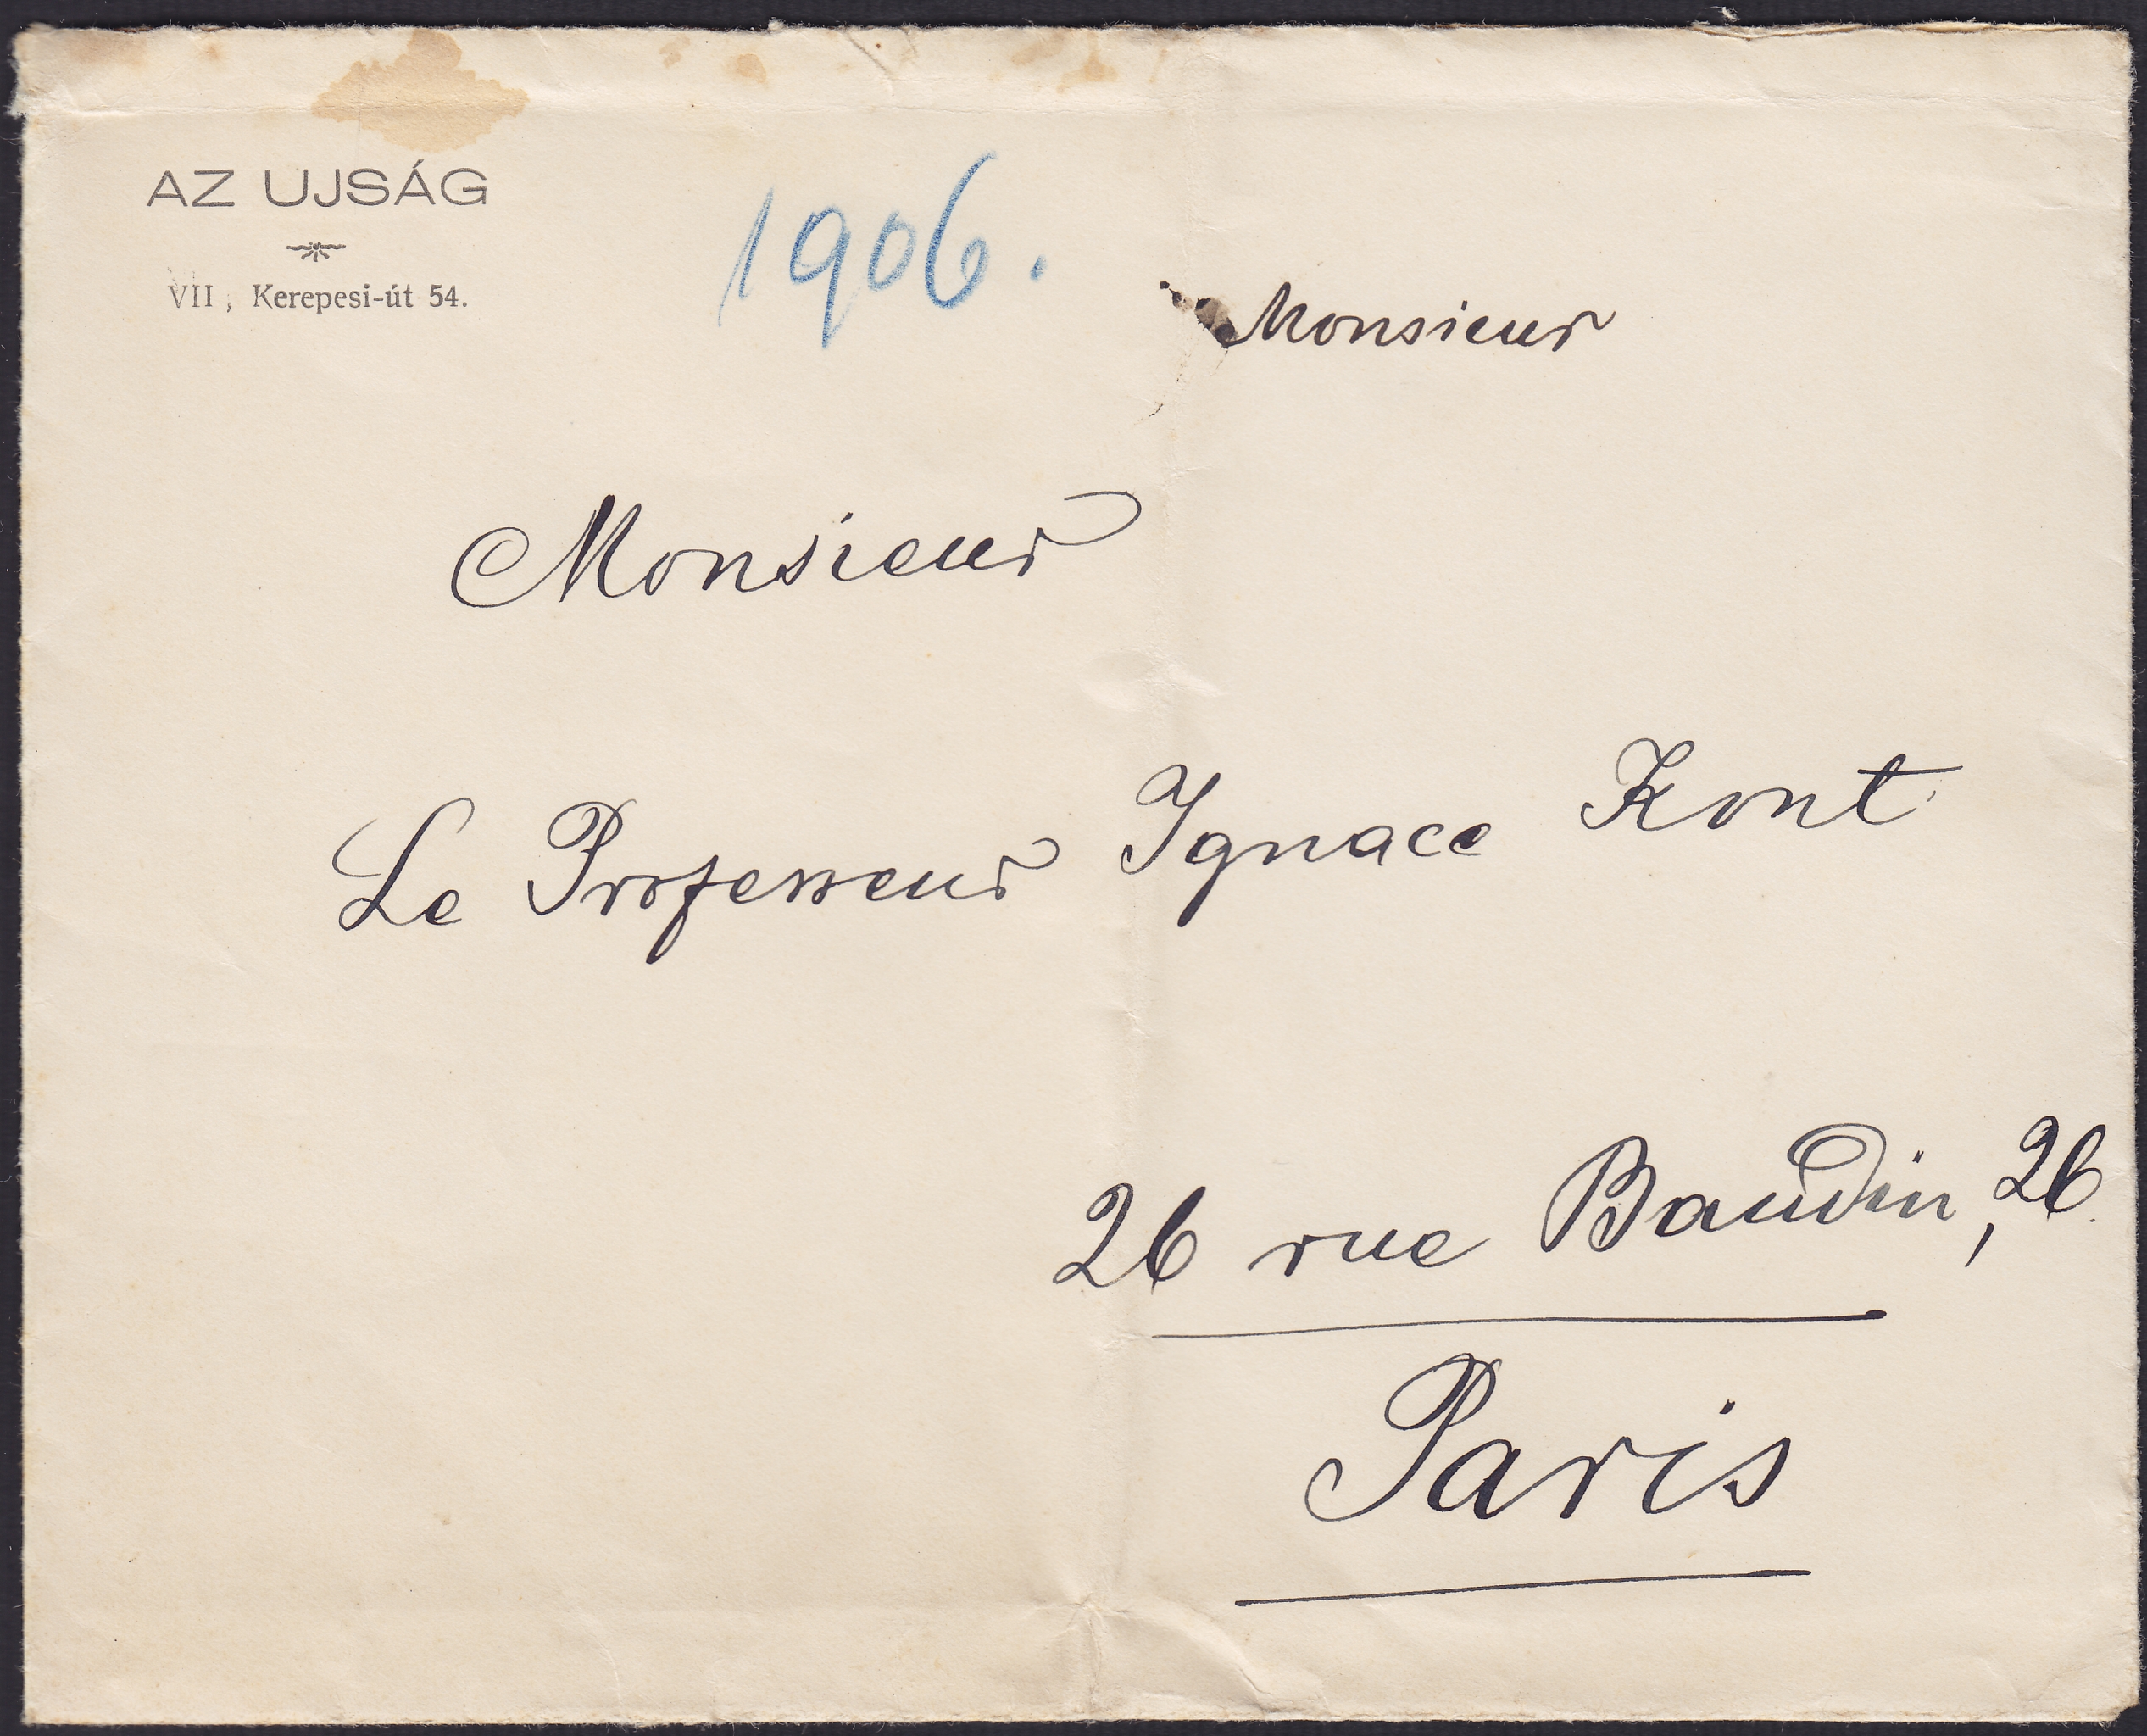 AZ UJSÁG
VII, Kerepesi-út 54.
1906.
Monsieur
Monsieur
Le Professeur Ignace Kont
26 rue Baudin, 26.
Paris